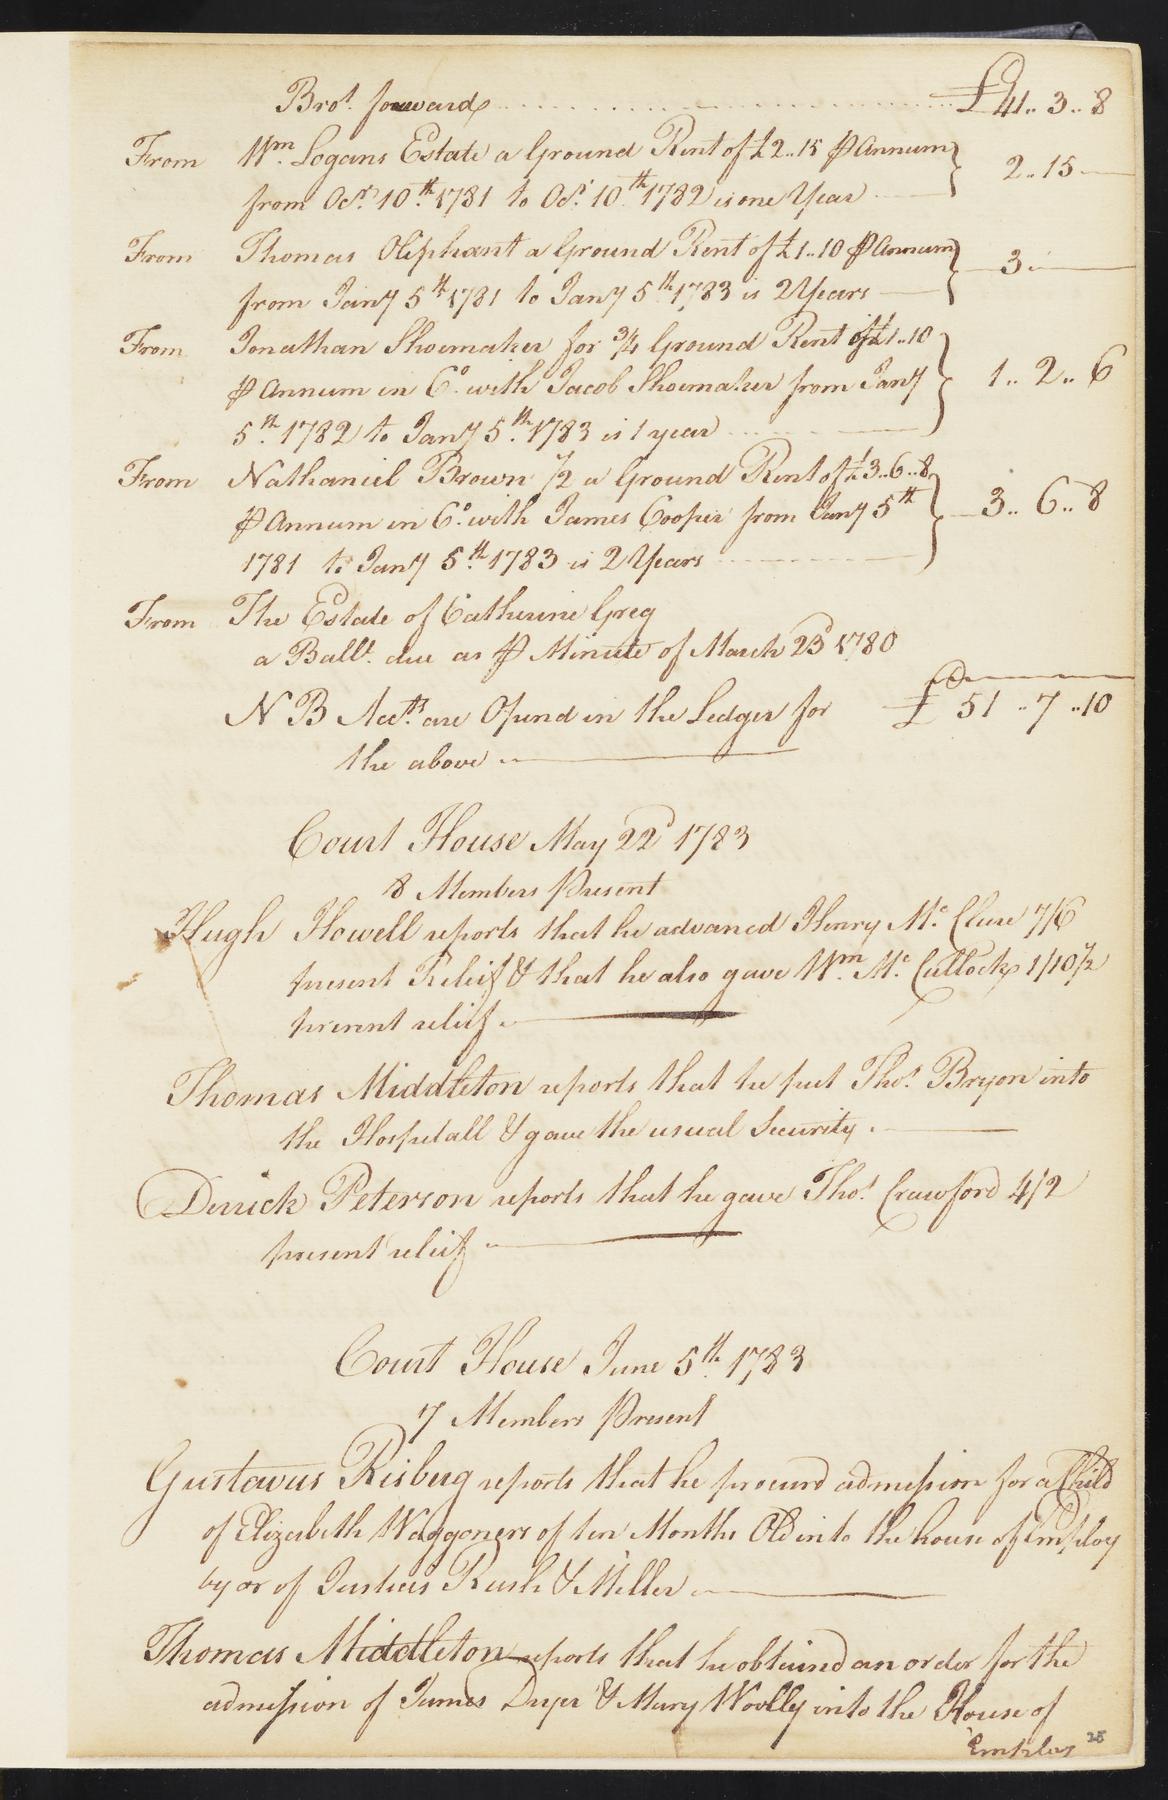 Brot. forward £41.. 3.. 8
From Wm. Logans Estate a Ground Rent of £2..15 ⅌ Annum
from Octr. 10th. 1781 to Octr. 10th 1782 is one Year 2..15
From Thomas Oliphant a Ground Rent of £1..10 ⅌ Annum
from Jany 5th 1781 to Jany 5th 1783 is 2 Years 3
From Jonathan Shoemaker for 3/4 Ground Rent of £1..10
⅌ Annum in Co. with Jacob Shoemaker from Jany 1.. 2.. 6
5th. 1782 to Jany 5th. 1783 is 1 year
From Nathaniel Brown 1/2 a Ground Rent of £3..6..8
⅌ Annum in Co. with James Cooper from Jany 5th 3.. 6.. 8
1781 to Jany 5th. 1783 is 2 Years
From The Estate of Catherine Greg
a Balle. due as ⅌ Minute of March 23d 1780
N B Accts. are Opend in the Ledger for £ 51 .. 7 ..10
the above
Court House May 22d 1783
8 Members Present
Hugh Howell reports that he advanced Henry Mc. Clure 7/6
present Relief & that he also gave Wm. Mc. Cullock 1/10½
present relief.
Thomas Middleton reports that he put Thos. Bryon into
the Hospitall & gave the usual Security.
Derrick Peterson reports that he gave Thos. Crawford 4/2
present relief
Court House June 5th. 1783
7 Members Present
Gustavus Risberg reports that he procurd admission for a Child
of Elizabeth Waggoners of ten Months Old into the house of Employ
by or of Justices Rush & Miller
Thomas Middleton reports that he obtaind an order for the
admission of James Dryer & Mary Woolly into the House of
Employ
25